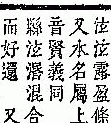 泫泫露盈條
又水名屬上
音賢義同
縣泫混合
而好還 又